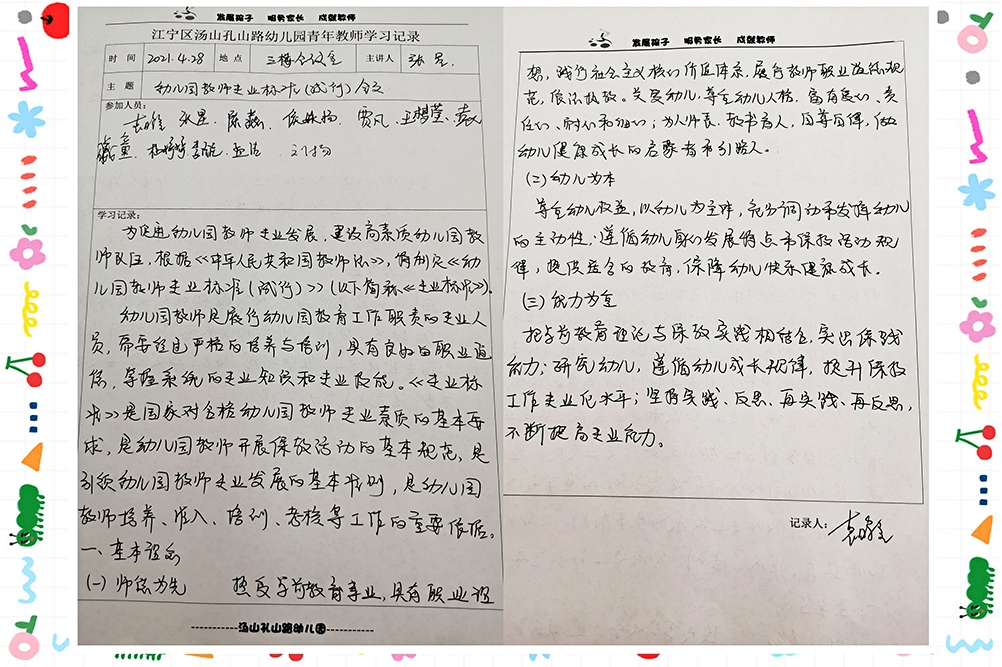 发展孩子 服务家长 成就教师
江宁区汤山孔山路幼儿园青年教师学习记录
时间 2021.4.28 地点 三楼会议室 主讲人 张昱.
主题 幼儿园教师专业标准(试行)
参加人员:
张昱.
学习记录:
为促进幼儿园教师专业发展,建设高素质幼儿园教
师队伍,根据《中华人民共和国教师法》,特制定《幼
儿园教师专业标准(试行)》(以下简称《专业标准》).
幼儿园教师是履行幼儿园教育工作职责的专业人
员,需要经过严格的培养与培训,具有良好的职业道
德,掌握系统的专业知识和专业技能。《专业标
准》是国家对合格幼儿园教师专业素质的基本要
求,是幼儿园教师开展保教活动的基本规范,是
引领幼儿园教师专业发展的基本准则,是幼儿园
教师培养、准入、培训、考核等工作的重要依据。
一、基本理念
(一)师德为先 热爱学前教育事业,具有职业理
-----------汤山孔山路幼儿园-----------
发展孩子 服务家长 成就教师
想,践行社会主义核心价值体系,履行教师职业道德规
范,依法执教。关爱幼儿,尊重幼儿人格,富有爱心、责
任心、耐心和细心;为人师表,教书育人,自尊自律,做
幼儿健康成长的启蒙者和引路人。
(二)幼儿为本
尊重幼儿权益,以幼儿为主体,充分调动和发挥幼儿
的主动性;遵循幼儿身心发展特点和保教活动规
律,提供适合的教育,保障幼儿快乐健康成长.
(三)能力为重
把学前教育理论与保教实践相结合,突出保践
能力;研究幼儿,遵循幼儿成长规律,提升保教
工作专业化水平;坚持实践、反思、再实践、再反思,
不断提高专业能力。
记录人: